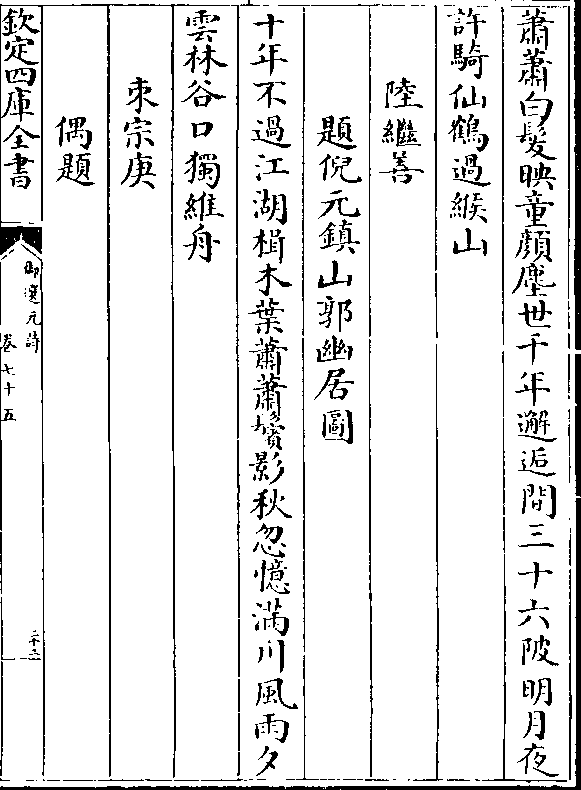 蕭蕭白髮映童顏塵世千年邂逅間三十六陂明月夜
許騎仙鶴過緱山
陸繼善
題倪元鎮山郭幽居圖
十年不過江湖楫木葉蕭蕭鬢影秋忽憶滿川風雨夕
雲林谷口獨維舟
朿宗庚
偶題
欽定四庫全書
御選元詩
卷七十五